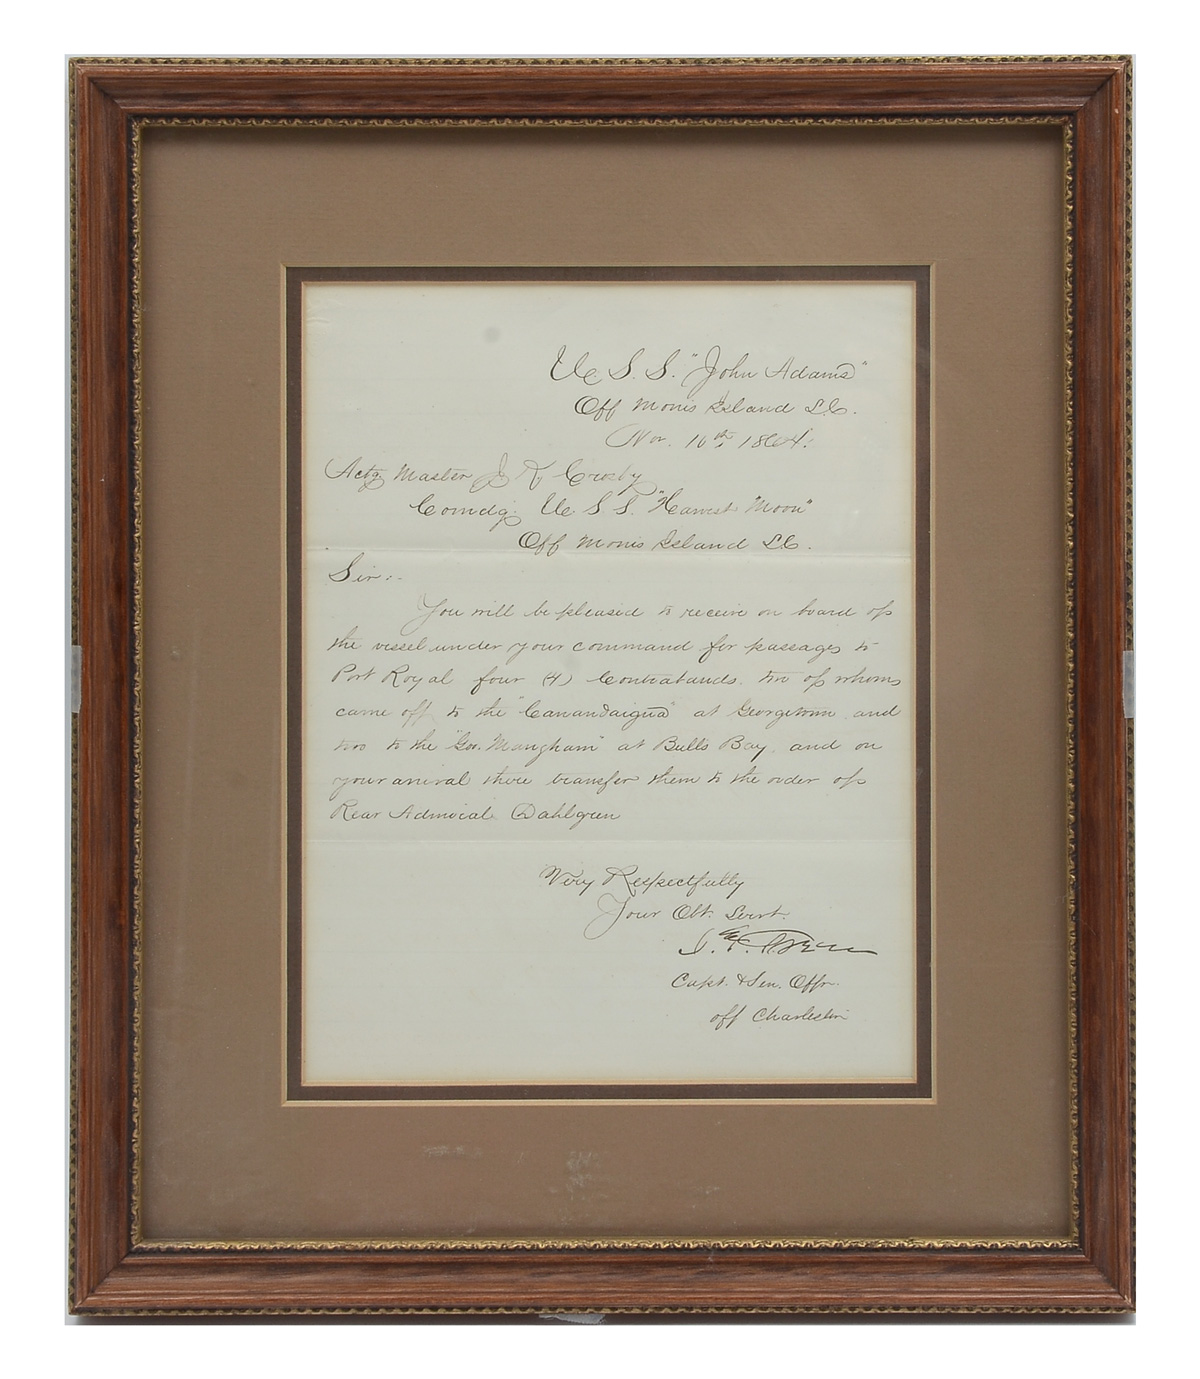 U. S. S. "John Adams"
Off Morris Island S.C.
Nov. 16th 1864.
Actg Master J K Crosby
Comdg. U S S. "Harvest Moon"
Off Morris Island S.C.
Sir:-
You will be pleased to receive on board of
the vessel under your command for passages to
Port Royal four (4) Contrabands. two of whom
came off to the "Canandaigua" at Georgetown and
two to the "Geo. Mangham" at Bulls Bay, and on
your arrival there transfer them to the order of
Rear Admiral Dahlgren
Very Respectfully
Your Obt. Servt.
Capt. & Sen. Offr.
off Charleston